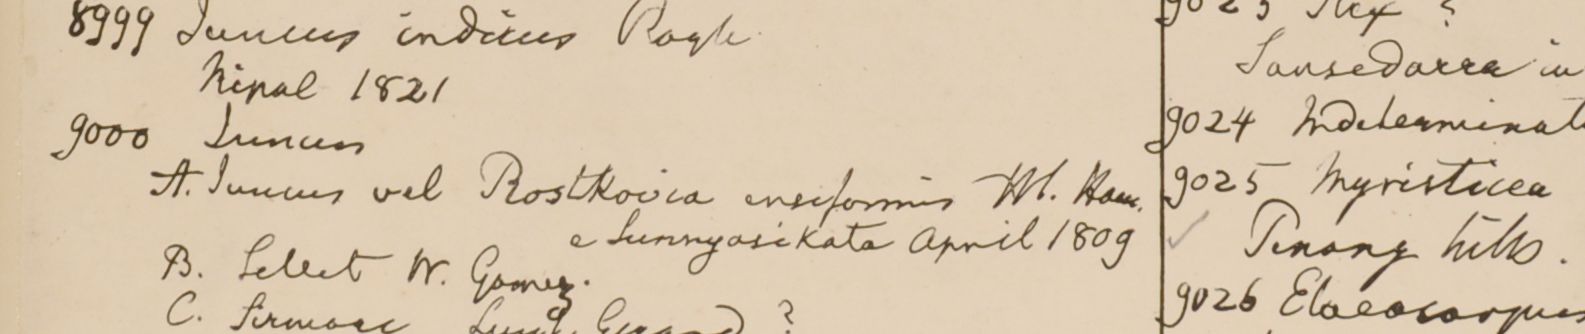 8999 Juncus indicus Royle
Nipal 1821
9000 Juncus
A. Juncus vel Rostkovia ensiformis Hb. Ham.
e Sunnyasikata April 1809
B. Sillet W. Gomez.
C. Sirmore Gerard ?
9023 ?
in
9024 Indeterminat
9025 Myristicea
Penang hills.
9026 Elaeocarpus